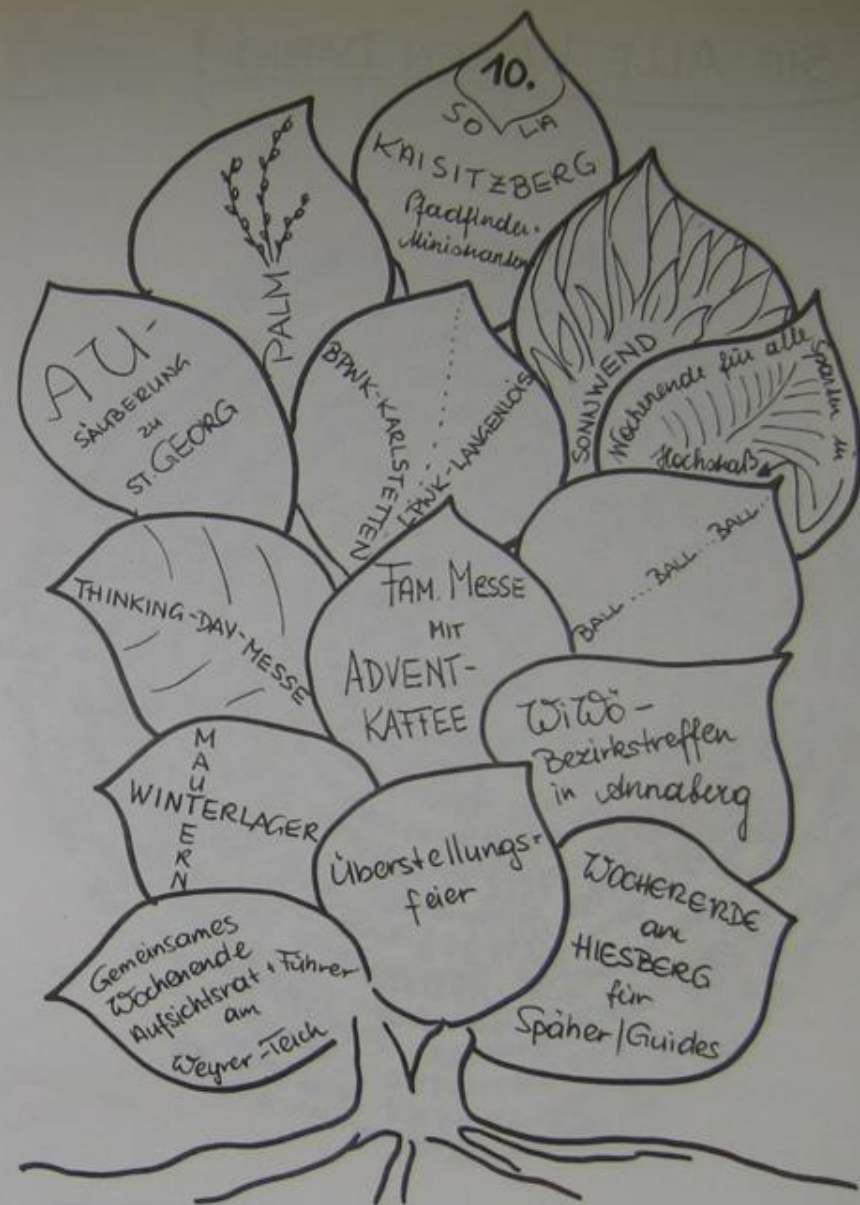 10.
SO LA
KAISITZBERG
Pfadfinder-
Ministranten
PALM
SONNWEND
Wochenende für alle Sparten in
Hochstraß
AU-
SÄUBERUNG
ZU
ST. GEORG
BPWK-KARLSTETTEN
LPWK-LANGENLOIS
BALL...BALL...BALL...
THINKING-DAY-MESSE
FAM. MESSE
MIT
ADVENT-
KAFFEE
WiWö-
Bezirkstreffen
in Annaberg
MAUTERN
WINTERLAGER
Überstellungs-
feier
WOCHERERDE
am
HIESBERG
für
Späher/Guides
Gemeinsames
Wochenende
Aufsichtsrat + Führer
am
Weyrer-Teich